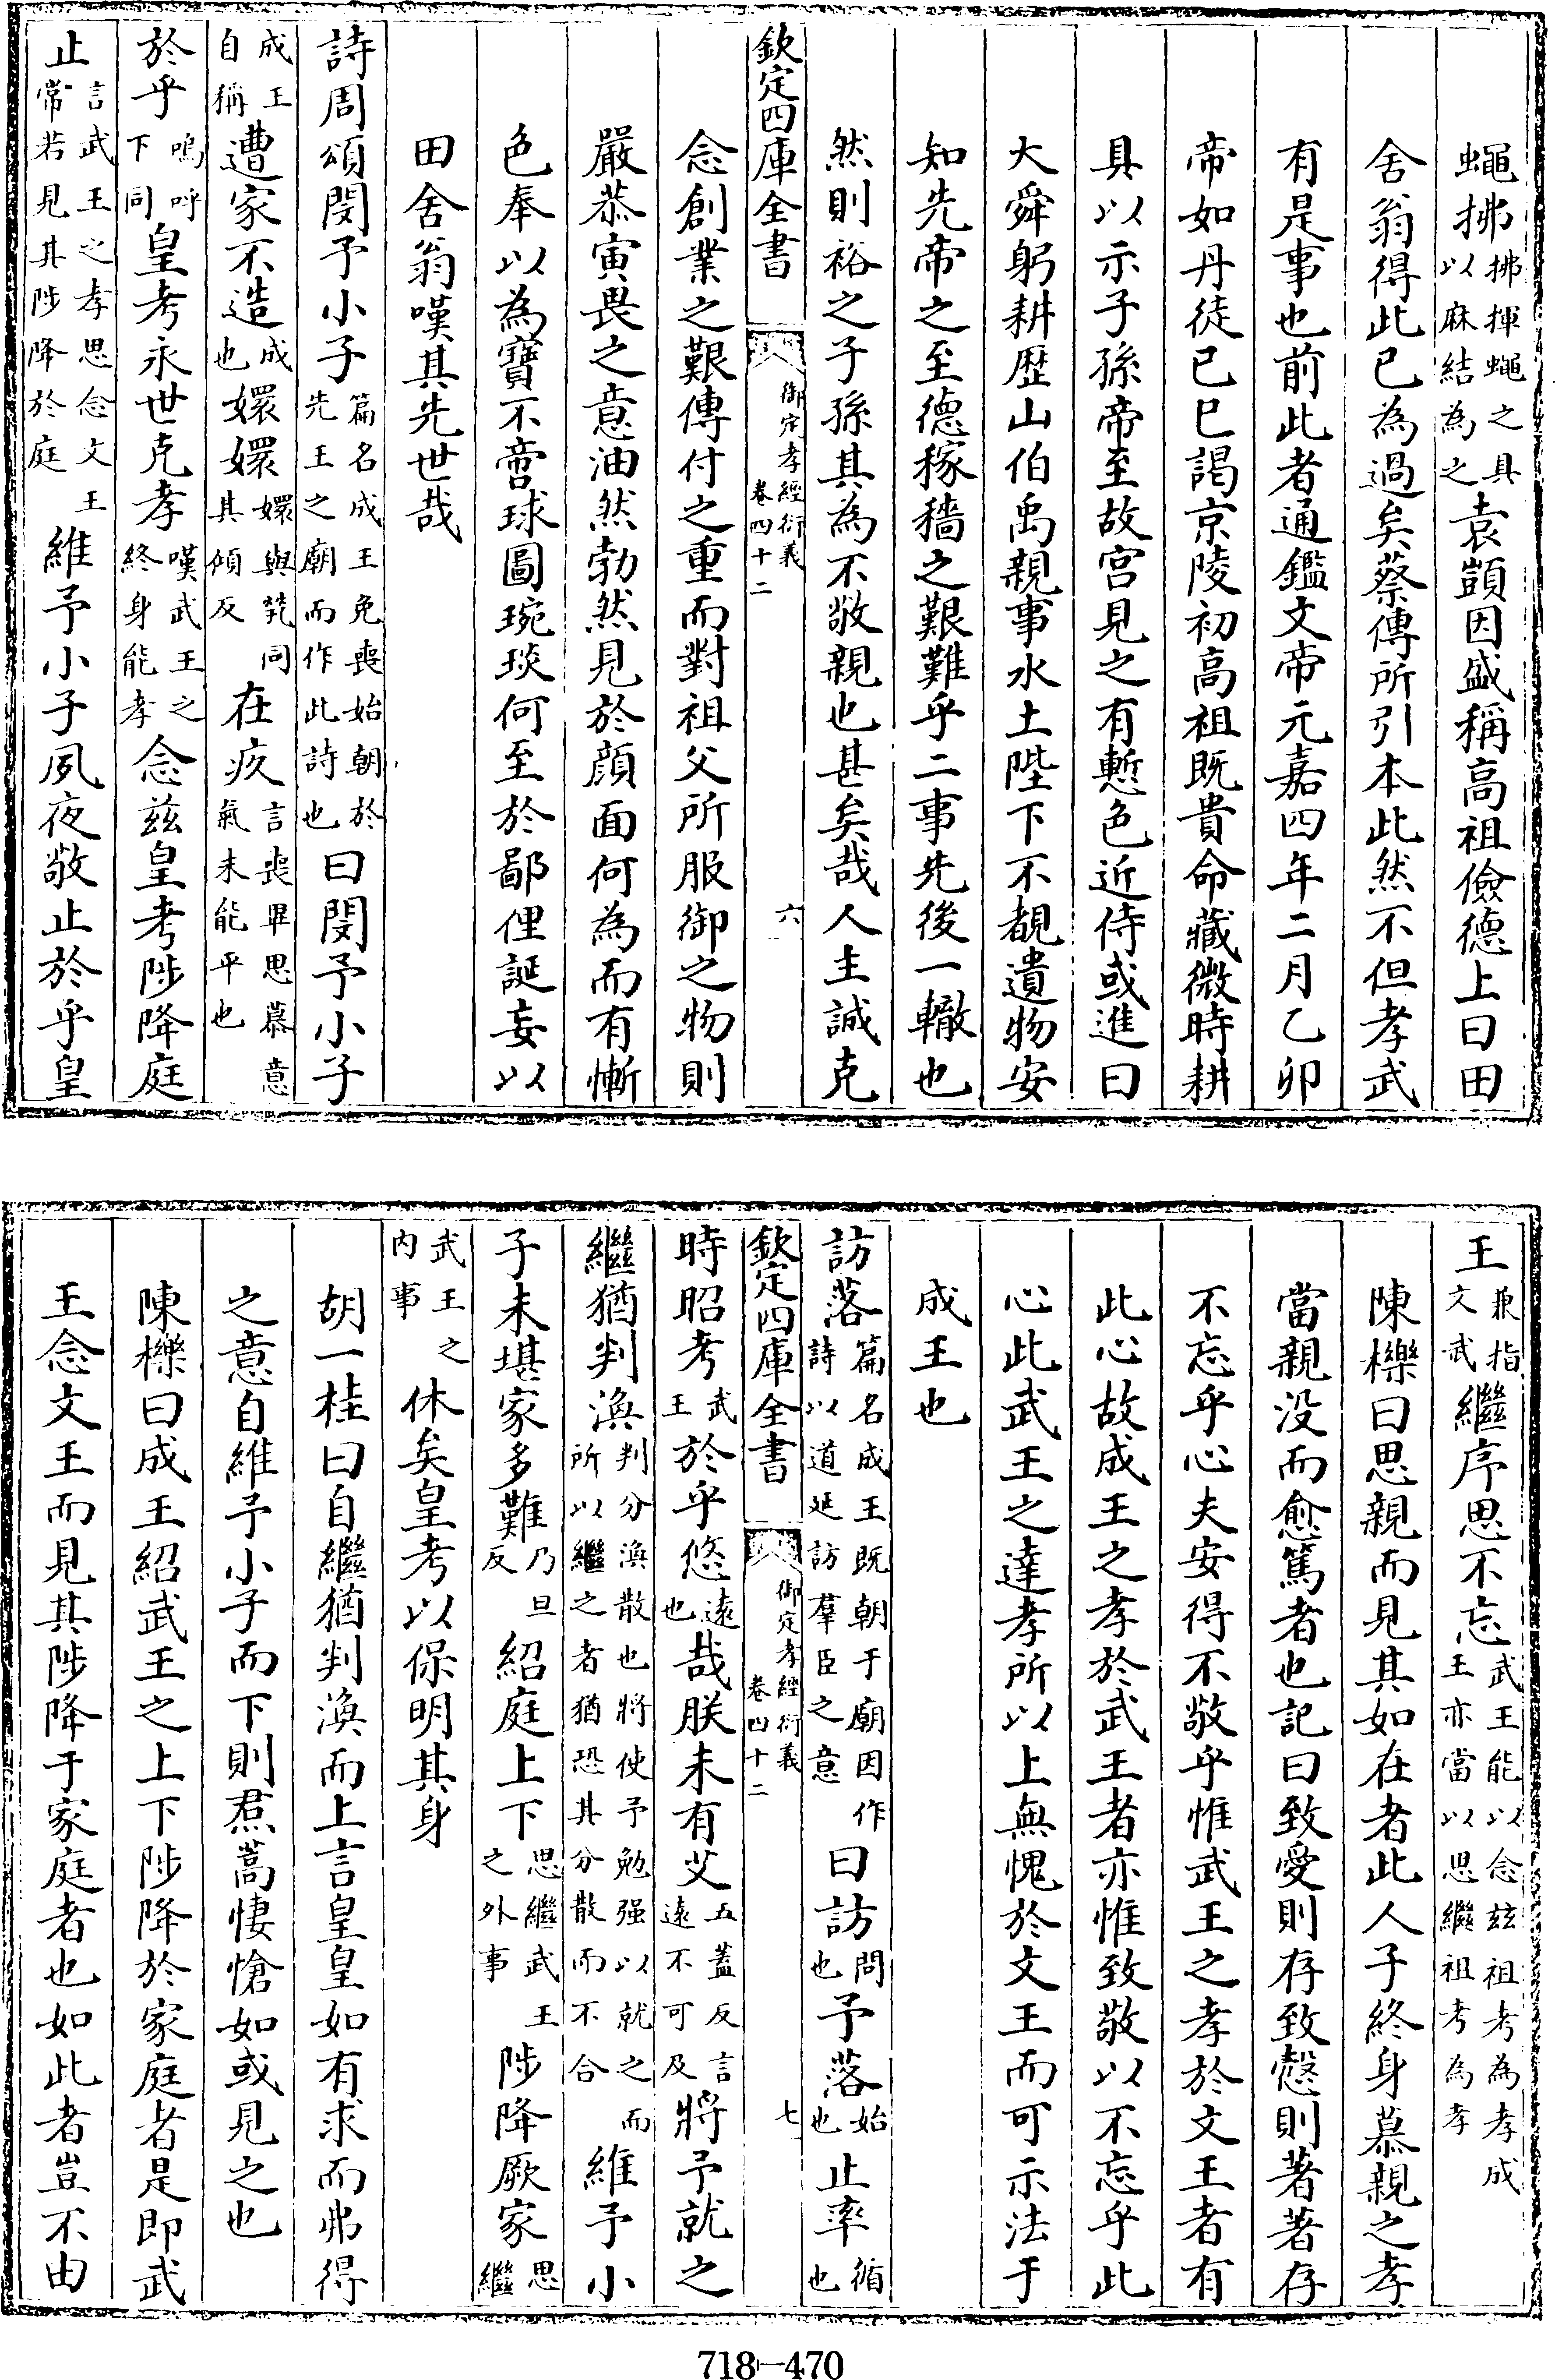 蠅拂拂揮蠅之具以麻結為之袁顗因盛稱高祖儉德上曰田
舍翁得此已為過矣蔡傳所引本此然不但孝武
有是事也前此者通鑑文帝元嘉四年二月乙卯
帝如丹徒己巳謁京陵初高祖既貴命藏微時耕
具以示子孫帝至故宫見之有慙色近侍或進曰
大舜躬耕歷山伯禹親事水土陛下不覩遺物安
知先帝之至德稼穡之艱難乎二事先後一轍也
然則裕之子孫其為不敬親也甚矣哉人主誠克
欽定四庫全書 御定孝經衍義 卷四十二 六
念創業之艱傳付之重而對祖父所服御之物則
嚴恭寅畏之意油然勃然見於顔面何為而有慚
色奉以為寶不啻球圖琬琰何至於鄙俚誕妄以
田舍翁嘆其先世哉
詩周頌閔予小子篇名成王免喪始朝於先王之廟而作此詩也曰閔予小子
成王自稱遭家不造成也嬛嬛嬛與煢同其傾反在疚言喪畢思慕意氣未能平也
於乎嗚呼下同皇考永世克孝嘆武王之終身能孝念兹皇考陟降庭
止言武王之孝思念文王常若見其陟降於庭維予小子夙夜敬止於乎皇
王兼指文武繼序思不忘武王能以念兹祖考為孝成王亦當以思繼祖考為孝
陳櫟曰思親而見其如在者此人子終身慕親之孝
當親没而愈篤者也記曰致愛則存致慤則著著存
不忘乎心夫安得不敬乎惟武王之孝於文王者有
此心故成王之孝於武王者亦惟致敬以不忘乎此
心此武王之達孝所以上無愧於文王而可示法于
成王也
訪落篇名成王既朝于廟因作詩以道延訪羣臣之意曰訪問也予落始也止率循也
欽定四庫全書 御定孝經衍義 卷四十二 七
時昭考武王於乎悠遠也哉朕未有艾五蓋反言遠不可及將予就之
繼猶判渙判分渙散也將使予勉强以就之而所以繼之者猶恐其分散而不合維予小
子未堪家多難乃旦反紹庭上下思繼武王之外事陟降厥家思繼
武王之内事休矣皇考以保明其身
胡一桂曰自繼猶判渙而上言皇皇如有求而弗得
之意自維予小子而下則焄蒿悽愴如或見之也
陳櫟曰成王紹武王之上下陟降於家庭者是即武
王念文王而見其陟降于家庭者也如此者豈不由
718-470